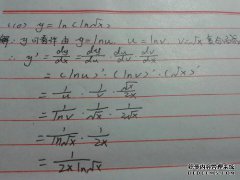 (10) y = ln(ln√x)
解: y可看作由 y=lnu, u=lnv, v=√x 复合
∴ y' = dy/dx = dy/du · du/dv · dv/dx
= (lnu)' · (lnv)' · (√x)'
= 1/u · 1/v ·
= 1/lnv · 1/√x · 1/2√x
= 1/ln√x · 1/2x
= 1/2x ln√x